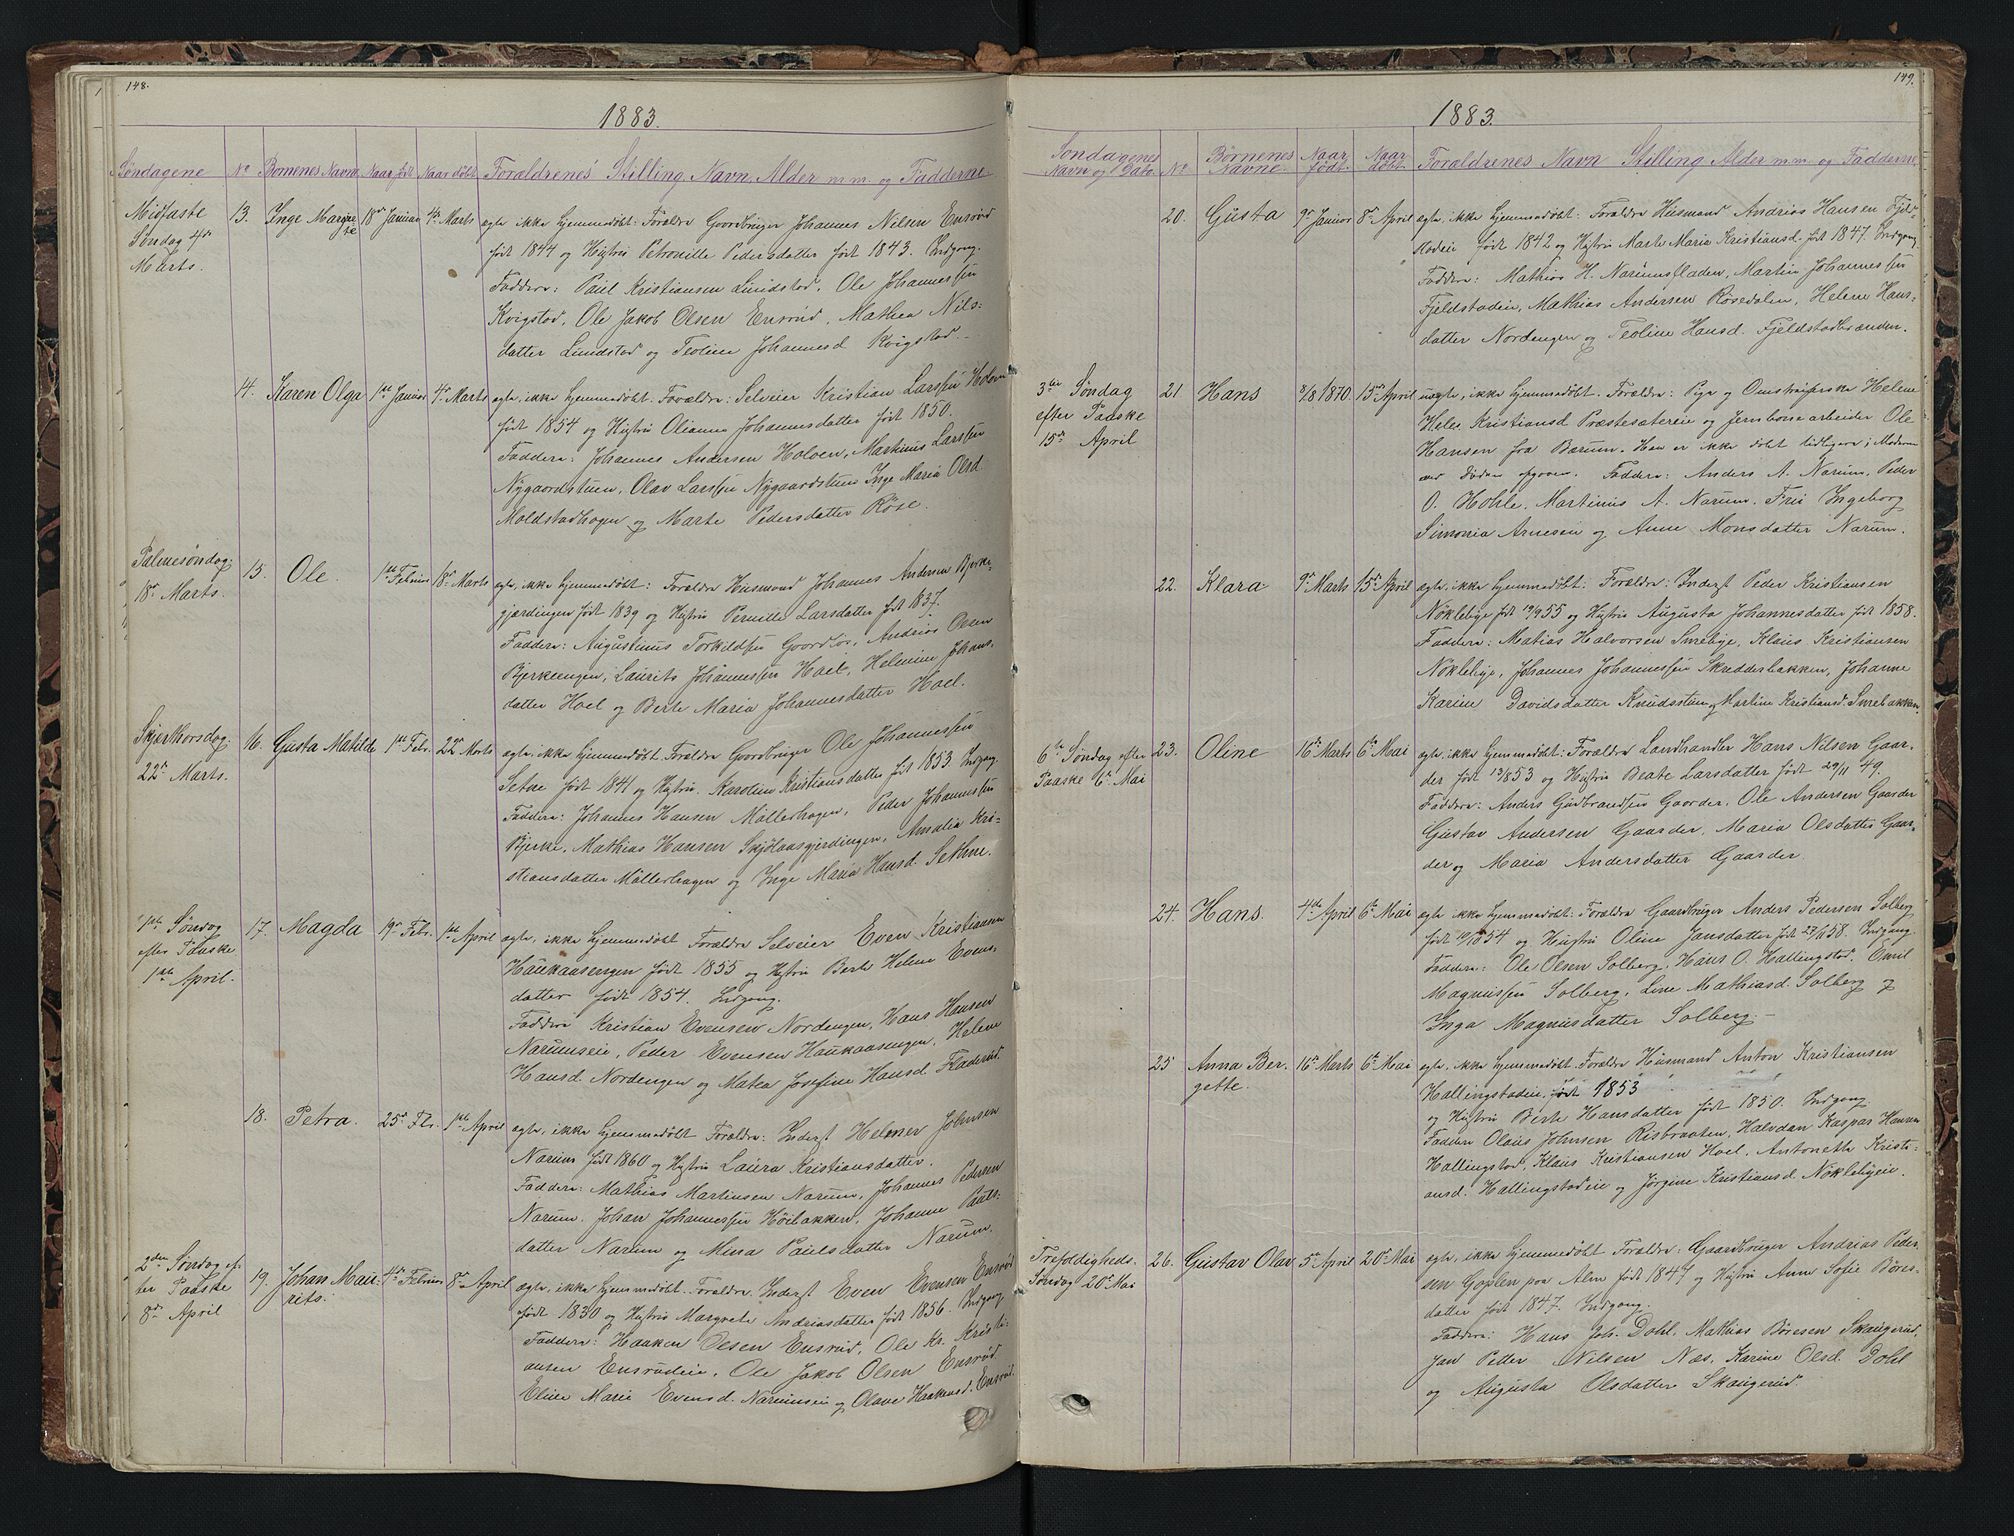 148.
1883.
Søndagene No Børnenes Navn Naar født Naar døbt Foraldrenes Stilling, Navn, Alder m.m. og Fadderne
Midfaste 13. Inge Margrete 18de Januar 4de Marts ægte ikke hjemmedøbt: Foraldre Gaardbruger Johannes Nielsen Ensrud
Søndag 4de født 1844 og Hustru Petronille Pedersdatter født 1843. Indgang.
Marts. Faddere: Paul Kristiansen Lundstad, Ole Johannessen
Kvigstad, Ole Jakob Olsen Ensrud, Mathea Nils-
datter Lundstad og Teoline Johannesd Kvigstad.
14. Karen Olga 1ste Januar 4de Marts ægte, ikke hjemmedøbt. Forældre: Selveier Kristian Larssen Holoen
født 1854 og Hustru Olianna Johannesdatter født 1850.
Faddere: Johannes Andersen Holoen, Martinus Larssen
Nygaardstuen, Olav Larssen Nygaardstuen Inge Maria Olsd.
Moldstadhagen og Marte Pedersdatter Røse.
Palmesøndag 15. Ole. 1ste Februar 18de Marts ægte, ikke hjemmedøbt: Forældre Husmand Johannes Andersen Bjerke-
18de Marts. gjærdingen født 1839 og Hustru Pernille Larsdatter født 1837.
Faddere: Augustinus Torkildsen Gaardløs, Andrias Olsen
Bjerkeengen, Laurits Johannessen Hoel, Helmine Johans-
datter Hoel og Berte Maria Johannesdatter Hoel.
Skjærthorsdag 16. Gusta Matilde 1ste Febr. 22de Marts ægte, ikke hjemmedøbt. Forældre Gaardbruger Ole Johannessen
22de Marts. Setne født 1841 og Hustru Karoline Kristiansdatter født 1853 Indgang.
Faddere: Johannes Hansen Møllerhagen, Peder Johannessen
Bjerke, Mathias Hansen Skjølaasgjerdingen, Amalia Kri-
stiansdatter Møllerhagen og Inge Maria Hansd. Sethne.
1ste Søndag 17. Magda 19de Febr. 1ste April ægte, ikke hjemmedøbt Forældre Selveier Even Kristiansen
efter Paaske Haukaasengen født 1855 og Hustru Berte Helene Evens-
1ste April. datter født 1854. Indgang.
Faddere Kristian Evensen Nordengen, Hans Hansen
Narumseie, Peder Evensen Haukaasengen, Helene
Hansd. Nordengen og Matea Josefine Hansd. Fladerud.
18. Petra. 25de Febr. 1ste April ægte, ikke hjemmedøbt Forældre: Inderst Helmer Johnsen
Narum født 1860 og Hustru Laura Kristiansdatter.
Faddere: Mathias Martinsen Narum, Johannes Pedersen
Narum, Johan Johannessen Høibakken, Johanne Pauls-
datter Narum og Mina Paulsdatter Narum.
2den Søndag ef- 19. Johan Mau- 4de Februar 8de April ægte, ikke hjemmedøbt. Forældre: Inderst Even Evensen Ensrud
ter Paaske rits. født 1830 og Hustru Margrete Andriasdatter født 1856. Indgang.
8de April Faddere: Haaken Olsen Ensrud, Ole Kr. Kristi-
ansen Ensrudeie, Ole Jakob Olsen Ensrud.
Eline Marie Evensd. Narumseie og Olave Haakensd. Ensrud.
149.
1883.
Søndagenes Navn og Dato. No Børnenes Navne. Naar født. Naar døbt Foraldrenes Navn Stilling Alder m.m. og Fadderne
20. Gusta 9de Januar 8de April ægte, ikke hjemmedøbt: Forældre Husmand Andrias Hansen Fjeld-
stadeie født 1842 og Hustru Marte Maria Kristiansd. født 1847. Indgang.
Faddere: Mathias H. Narumsfladen, Martin Johannessen
Fjeldstadeie, Mathias Andersen Rosedalen, Helene Hans-
datter Nordengen og Teoline Hansd. Fjeldstadbrænden.
3die Søndag 21 Hans 8/8 1870. 15de April uægte, ikke hjemmedøbt. Forældre: Pige og Omstreiferske Helene
efter Paaske Hele Kristiansd Præstesætereie og Jernbanearbeider Ole
15de April Hansen fra Bærum. Han er ikke døbt tidligere; Moderen
var Døden opgaven. Faddere: Anders A. Narum, Peder
O. Hohle, Martinus A. Narum, Frü Ingeborg
Simonia Arnesen og Anne Monsdatter Narum.
22. Klara 9de Marts 15de April ægte, ikke hjemmedøbt: Forældre: Inderst Peder Kristiansen
Nøklebye født 19/9 55 og Hustru Augusta Johannesdatter født 1858.
Faddere: Matias Halvorsen Smebye, Klaus Kristiansen
Nøklebye, Johannes Johannessen Skredderbakken, Johanne
Karine Davidsdatter Knudsstuen og Martine Kristiansd. Smebakken.
6te Søndag efter 23. Oline 16de Marts 6te Mai ægte, ikke hjemmedøbt: Forældre Landhandler Hans Nilsen Gaar-
Paaske 6te Mai der født 1853 og Hustru Beate Larsdatter født 29/11 49.
Faddere: Anders Gudbrandsen Gaarder, Ole Andersen Gaarder
Gustav Andersen Gaarder, Maria Olsdatter Gaar-
der og Maria Andersdatter Gaarder.
24. Hans. 4de April 6te Mai ægte ikke hjemmedøbt: Forældre Gaardbruger Anders Pedersen Solberg
født 1854 og Hustru Oline Jansdatter født 58. Indgang.
Faddere: Ole Olsen Solberg, Hans O. Hallingstad, Emil
Magnussen Solberg, Line Mathiasd. Solberg og
Inga Magnusdatter Solberg.
25 Anna Ber- 16de Marts 6te Mai ægte, ikke hjemmedøbt. Forældre Husmand Anton Kristiansen
gette. Hallingstadeie, født 1853
og Hustru Berte Hansdatter født 1850. Indgang.
Faddere Olaus Johnsen Risbraaten, Halvdan Kaspar Hansen
Hallingstad, Klaus Kristiansen Hoel, Antonette Kristi-
ansd. Hallingstadeie og Jørgine Kristiansd. Nøklebyeie.
Trefoldigheds- 26. Gustav Olav 5te April 20de Mai ægte, ikke hjemmedøbt Forældre: Gaardbruger Andrias Peder-
Søndag 20de Mai sen Goplen paa Alm født 1847 og Hustru Anne Sofie Børes-
datter født 1847. Indgang.
Faddere: Hans Joh. Dohl, Mathias Børesen Skaugerud,
Jan Petter Nilsen Næs, Karine Olsd. Dohl
og Augusta Olsdatter Skaugerud.